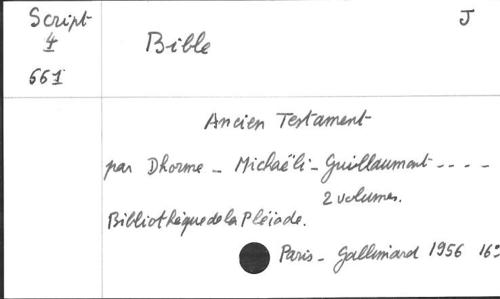 Script
4
661
Bible
J
Ancien Testament
par Dhorme - Michaëli - Guillaumont ----
2 volumes.
Bibliothèque de la Pléiade.
Paris - Gallimard 1956 16°